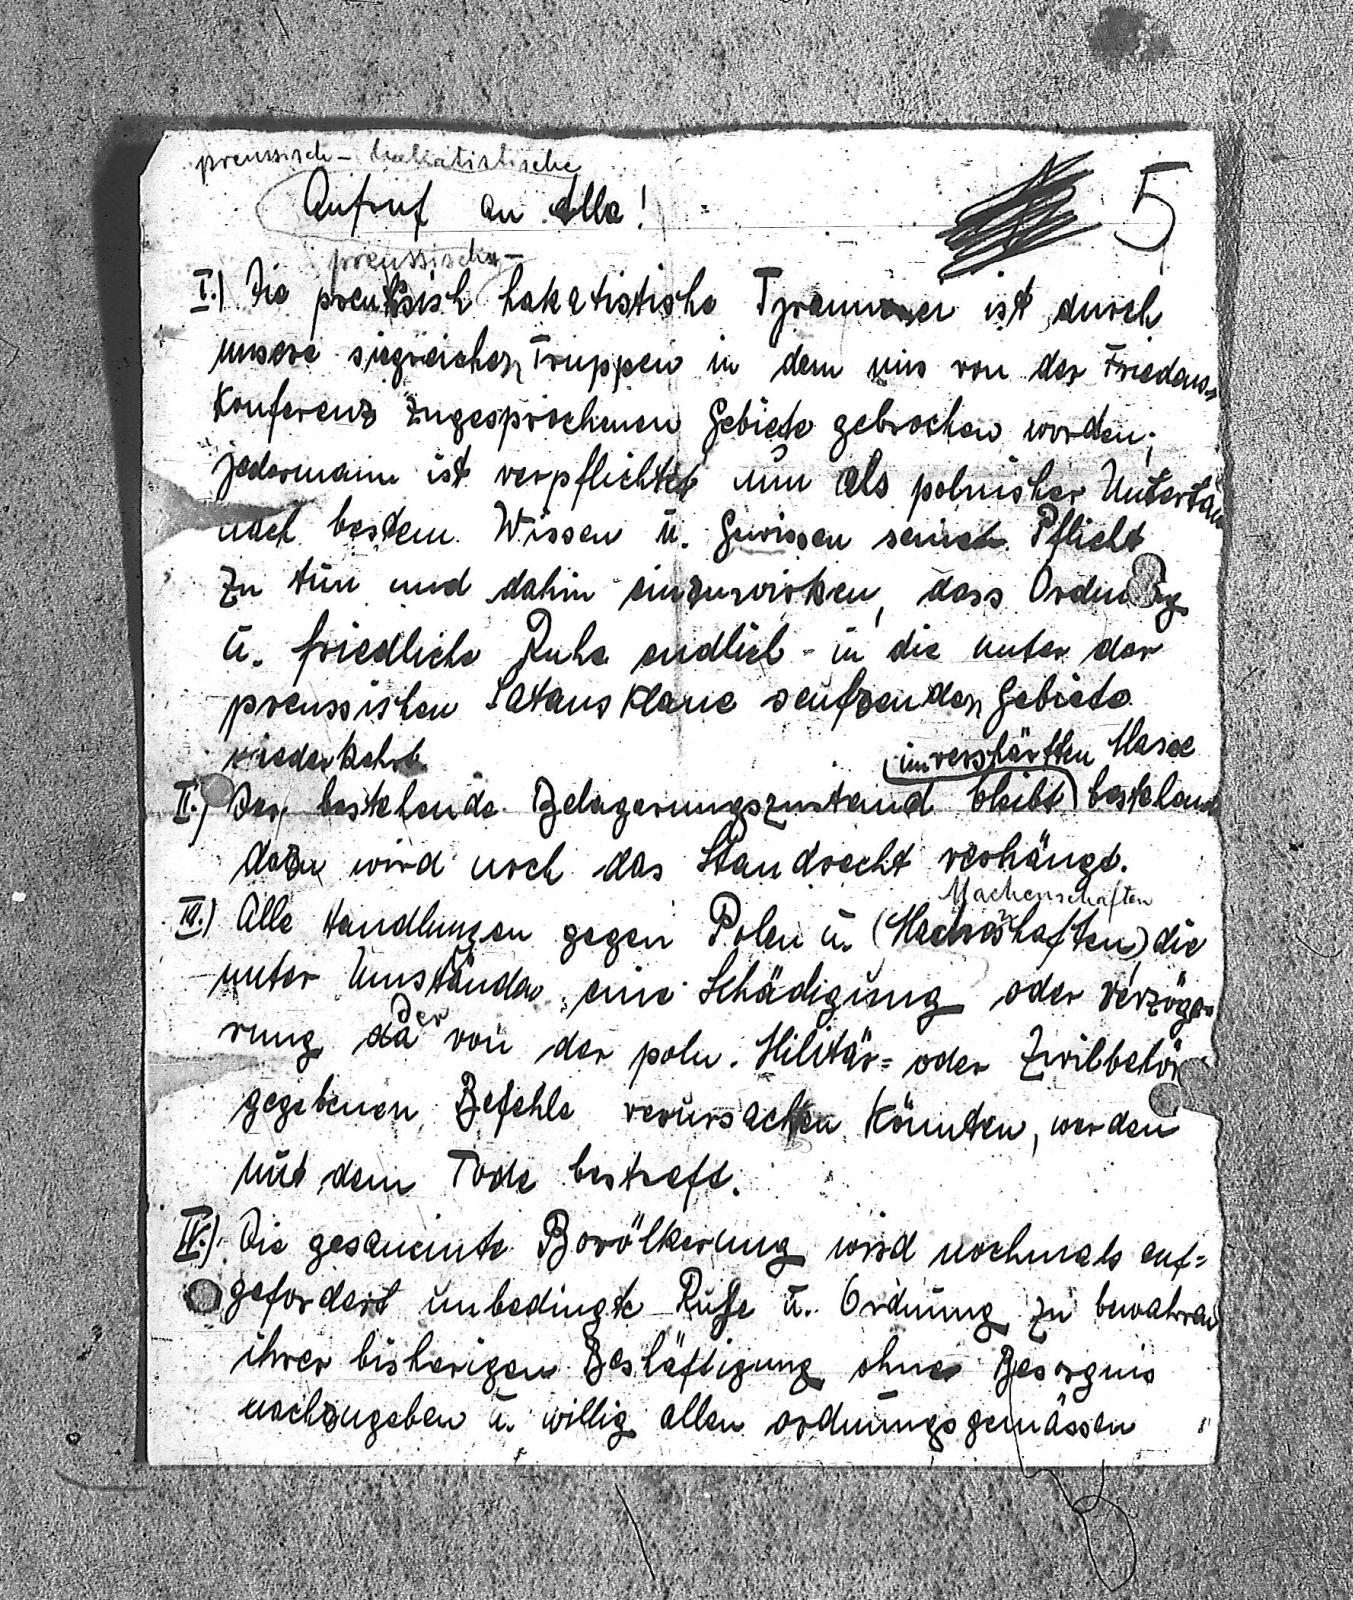 preussisch - hakatistische
Aufruf an Alle!
5
preussisch-
I.) Die preussisch hakatistische Tyrannei ist durch
unsere siegreichen Truppen in dem uns von der Friedens-
Konferenz zugesprochenen Gebiete gebrochen worden;
jedermann ist verpflichtet nun als polnischer Untertan
nach bestem Wissen u. Gewissen seine Pflicht
zu tun und dahin einzuwirken, dass Ordnung
u. friedliche Ruhe endlich - in die unter der
preussischen Satansklaue seufzenden Gebiete
wiederkehrt
im verschärften Masse
II.) Der bestehende Belagerungszustand bleibt bestehen
dazu wird noch das Standrecht verhängt.
Machenschaften
III.) Alle Handlungen gegen Polen u. (Machenshaften) die
unter Umständen eine Schädigung oder Verzöge=
der
rung da von der poln. Militär= oder Zivilbehör
gegebenen Befehle verursachen könnten, werden
mit dem Tode bestraft.
IV.) Die gesammte Bevölkerung wird nochmals auf=
gefordert unbedingte Ruhe u. Ordnung zu bewahren
ihrer bisherigen Beshäftigung ohne Besorgnis
nachzugeben u. willig allen ordnungsgemässen